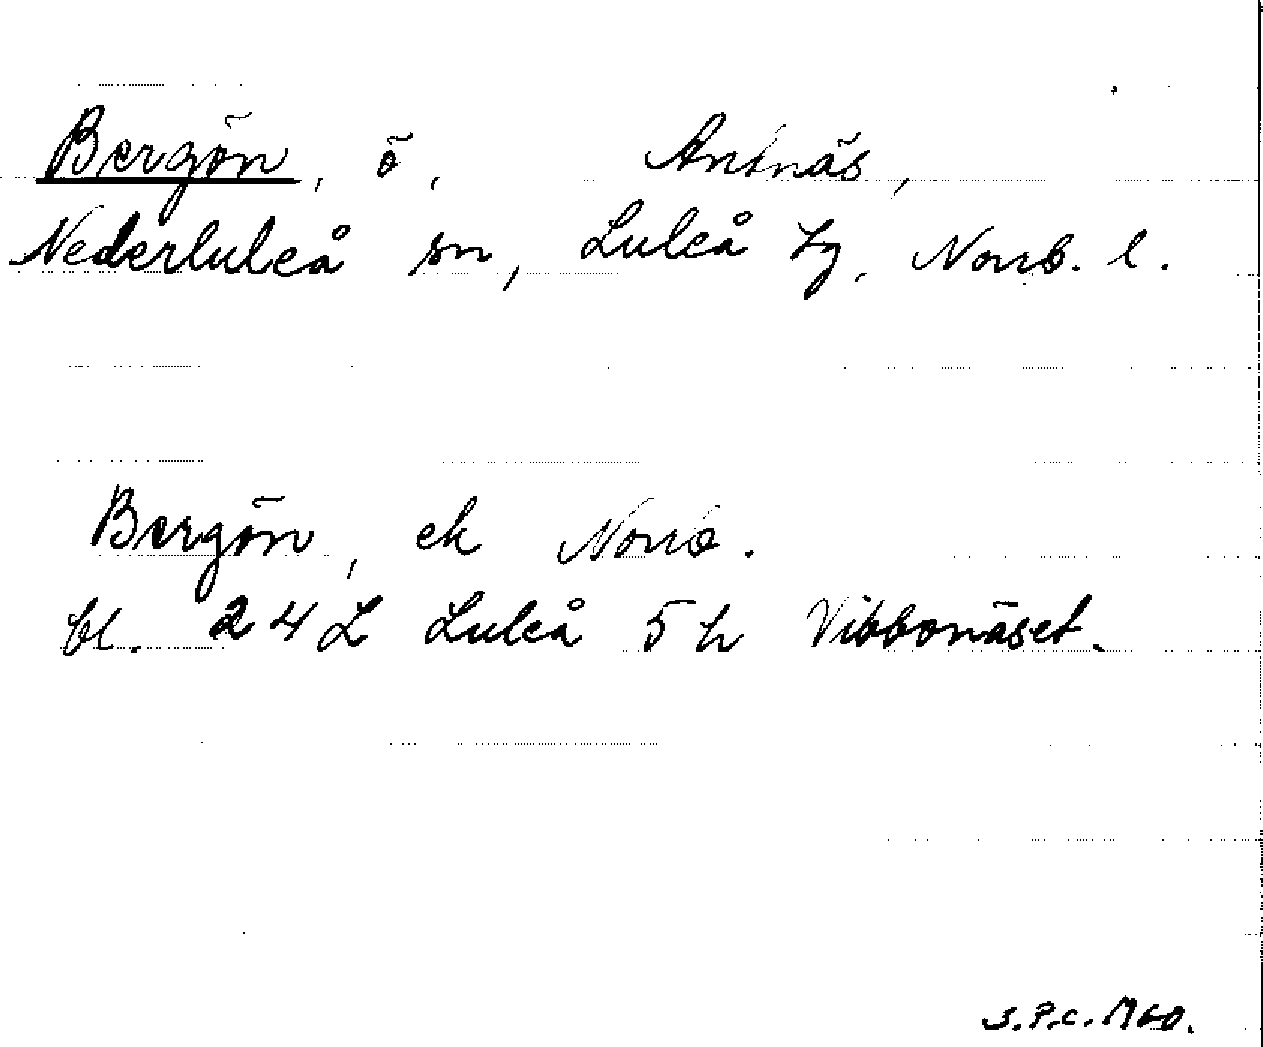 Bergön, ö, Antnäs,
Nederluleå sn, Luleå tg, Norrb. l.
Bergön, ek Norrb.
bl. 24 L Luleå 5 h Vibbonäset.
S.P.C. 1960.